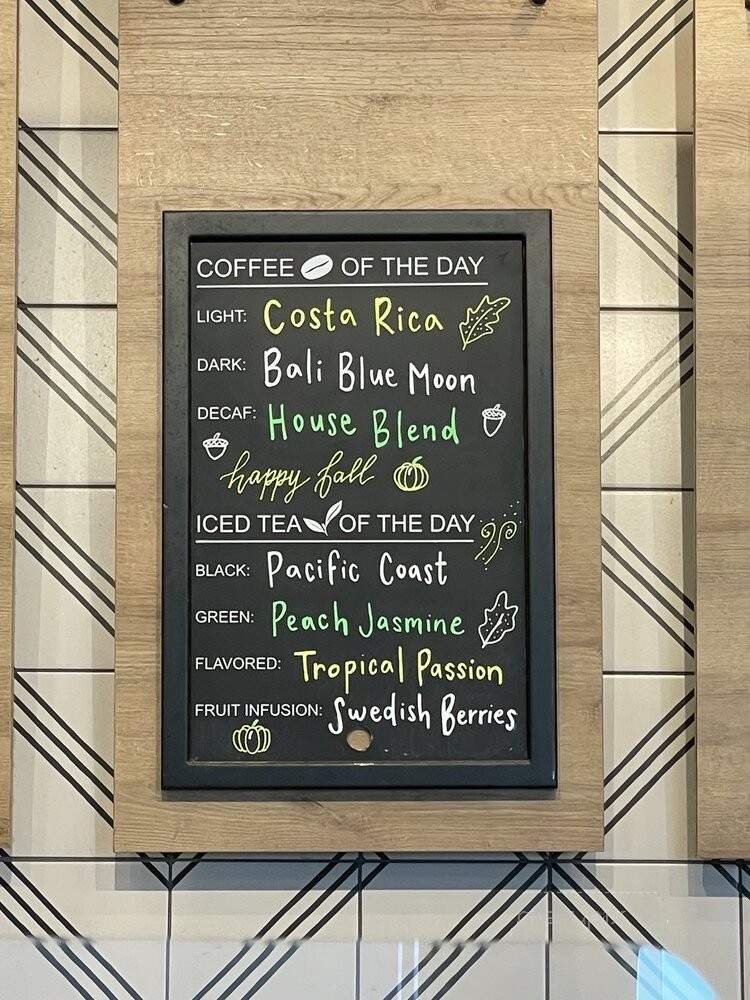 COFFEE OF THE DAY
LIGHT: Costa Rica
DARK: Bali Blue Moon
DECAF: House Blend
happy fall
ICED TEA OF THE DAY
BLACK: Pacific Coast
GREEN: Peach Jasmine
FLAVORED: Tropical Passion
FRUIT INFUSION: Swedish Berries